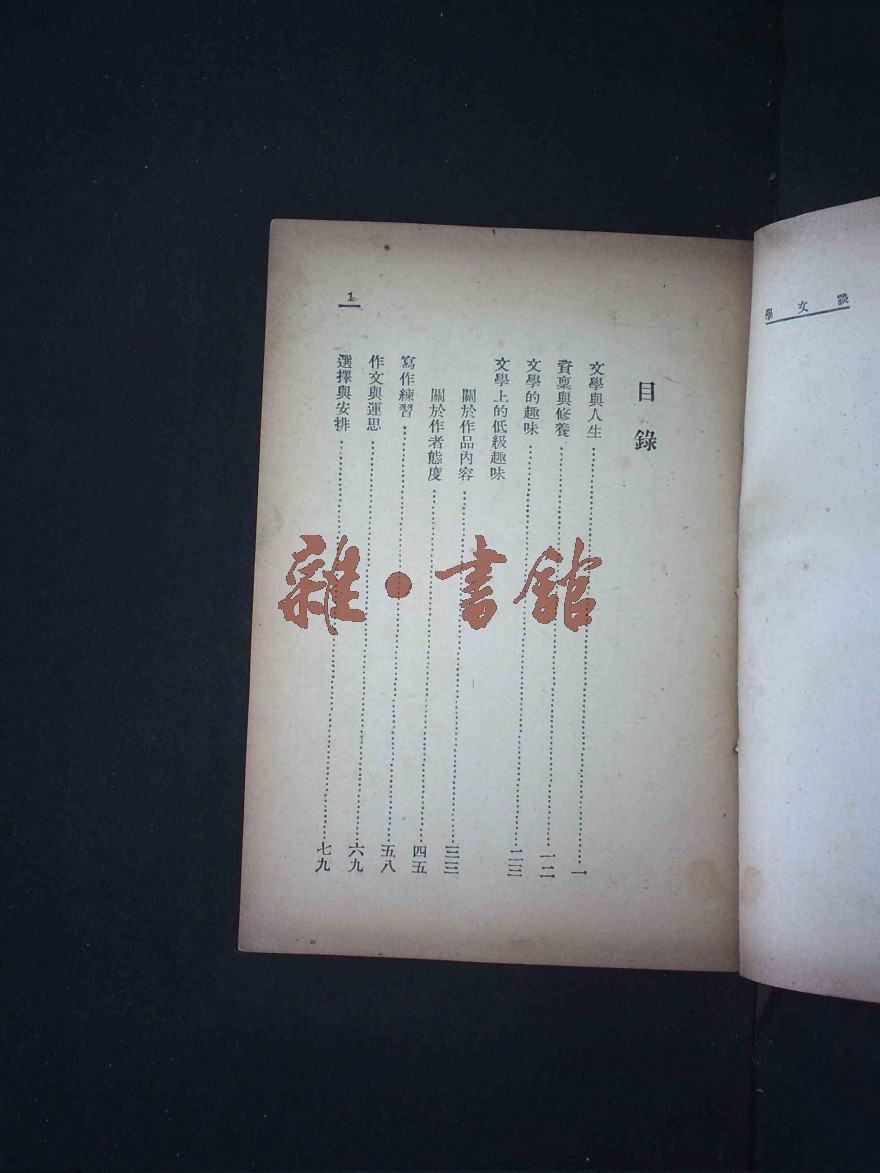 談文學
目錄
文學與人生……一
資稟與修養……一二
文學的趣味……二三
文學上的低級趣味
關於作品內容……三三
關於作者態度……四五
寫作練習……五八
作文與運思……六九
選擇與安排……七九
1
雜·書館